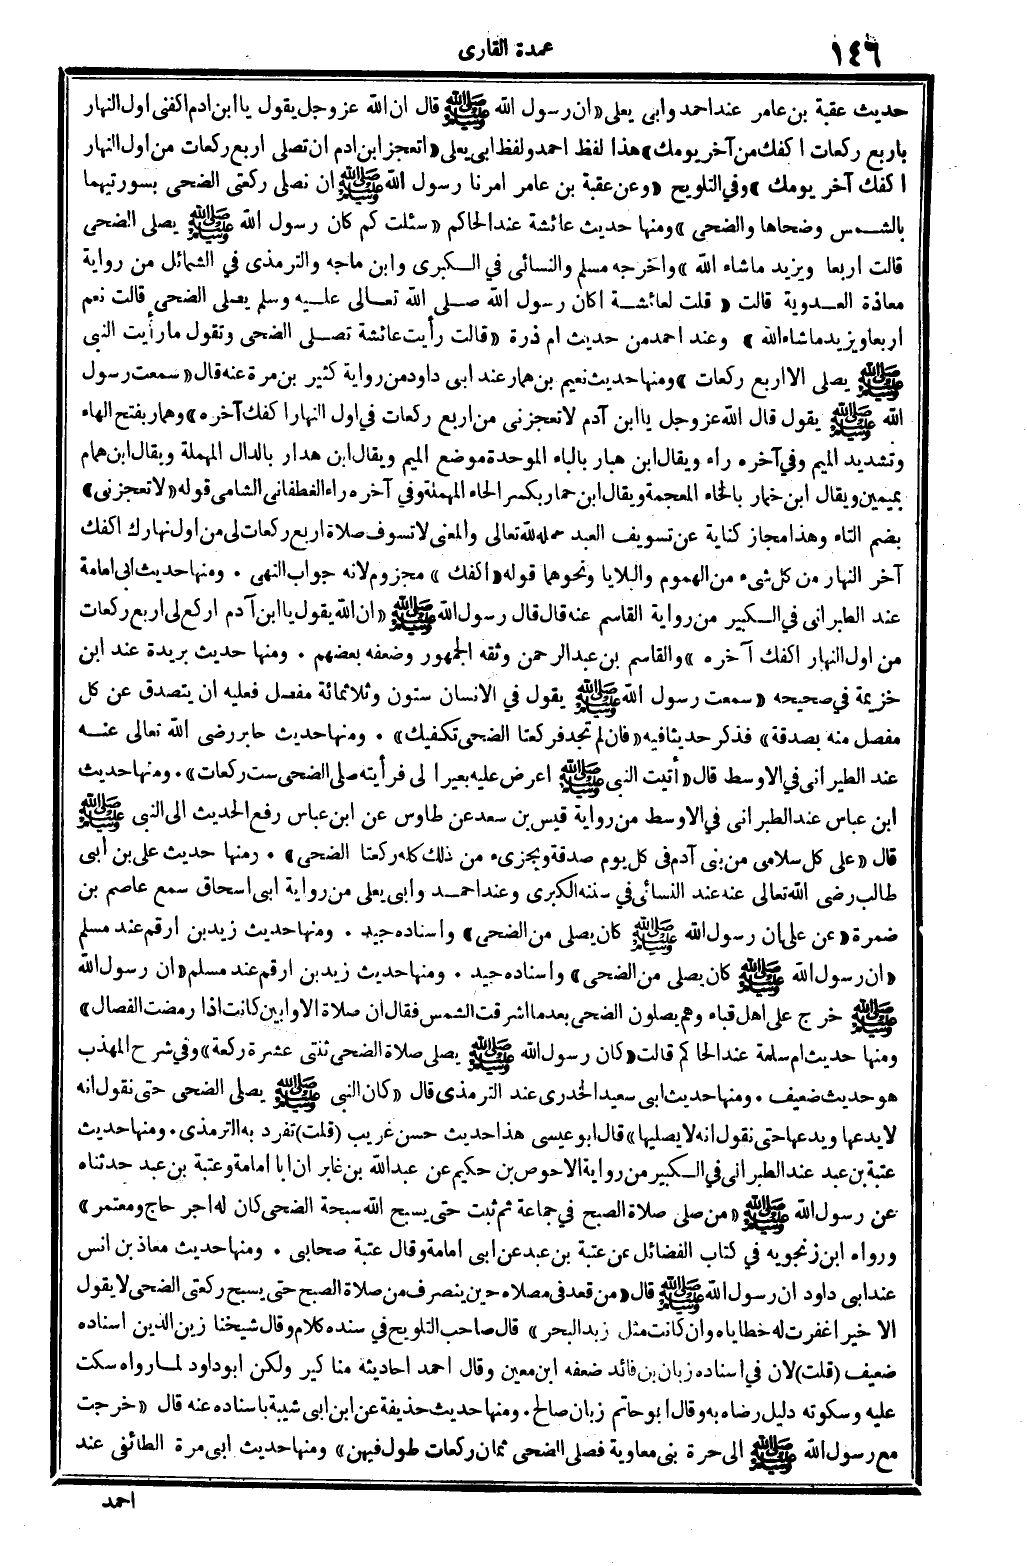 ١٤٦
عمدة القارى
حديث عقبة بن عامر عند احمد وابى يعلى «ان رسول الله ﷺ قال ان الله عز وجل يقول يا ابن ادم اكفنى اول النهار
باربع ركعات اكفك من آخر يومك» هذا لفظ احمد ولفظ ابى يعلى «اتعجز ابن ادم ان تصلى اربع ركعات من اول النهار
اكفك آخر يومك» وفي التلويح «وعن عقبة بن عامر امرنا رسول الله ﷺ ان نصلى ركعتى الضحى بسورتيهما
بالشمس وضحاها والضحى» ومنها حديث عائشة عند الحاكم «سئلت كم كان رسول الله ﷺ يصلى الضحى
قالت اربعا ويزيد ماشاء الله» واخرجه مسلم والنسائى في الكبرى وابن ماجه والترمذى في الشمائل من رواية
معاذة العدوية قالت «قلت لعائشة اكان رسول الله صلى الله تعالى عليه وسلم يصلى الضحى قالت نعم
اربعا ويزيد ماشاء الله» وعند احمد من حديث ام ذرة «قالت رأيت عائشة تصلى الضحى وتقول ما رأيت النبى
ﷺ يصلى الا اربع ركعات» ومنها حديث نعيم بن همار عند ابى داود من رواية كثير بن مرة عنه قال «سمعت رسول
الله ﷺ يقول قال الله عز وجل يا ابن آدم لا تعجزنى من اربع ركعات في اول النهار اكفك آخره» وهمار بفتح الهاء
وتشديد الميم وفي آخره راء ويقال ابن هبار بالباء الموحدة موضع الميم ويقال ابن هدار بالدال المهملة ويقال ابن همام
بميمين ويقال ابن خمار بالخاء المعجمة ويقال ابن حمار بكسر الحاء المهملة وفي آخره راء الغطفانى الشامى قوله «لا تعجزنى»
بضم التاء وهذا مجاز كناية عن تسويف العبد عمله لله تعالى والمعنى لا تسوف صلاة اربع ركعات لى من اول نهارك اكفك
آخر النهار من كل شىء من الهموم والبلايا ونحوهما قوله «اكفك» مجزوم لانه جواب النهى . ومنها حديث ابى امامة
عند الطبرانى في الكبير من رواية القاسم عنه قال قال رسول الله ﷺ «ان الله يقول يا ابن آدم اركع لى اربع ركعات
من اول النهار اكفك آخره» والقاسم بن عبد الرحمن وثقه الجمهور وضعفه بعضهم . ومنها حديث بريدة عند ابن
خزيمة في صحيحه «سمعت رسول الله ﷺ يقول في الانسان ستون وثلاثمائة مفصل فعليه ان يتصدق عن كل
مفصل منه بصدقة» فذكر حديثا فيه «فان لم تجد فركعتا الضحى تكفيك» . ومنها حديث جابر رضى الله تعالى عنه
عند الطبرانى في الاوسط قال «أتيت النبى ﷺ اعرض عليه بعيرا لى فرأيته صلى الضحى ست ركعات» . ومنها حديث
ابن عباس عند الطبرانى في الاوسط من رواية قيس بن سعد عن طاوس عن ابن عباس رفع الحديث الى النبى ﷺ
قال «على كل سلامى من بنى آدم فى كل يوم صدقة ويجزىء من ذلك كله ركعتا الضحى» . ومنها حديث على بن أبى
طالب رضى الله تعالى عنه عند النسائى في سننه الكبرى وعند احمد وابى يعلى من رواية ابى اسحاق سمع عاصم بن
ضمرة «عن على ان رسول الله ﷺ كان يصلى من الضحى» واسناده جيد . ومنها حديث زيد بن ارقم عند مسلم
«ان رسول الله ﷺ كان يصلى من الضحى» واسناده جيد . ومنها حديث زيد بن ارقم عند مسلم «ان رسول الله
ﷺ خرج على اهل قباء وهم يصلون الضحى بعد ما اشرقت الشمس فقال ان صلاة الاوابين كانت اذا رمضت الفصال»
ومنها حديث ام سلمة عند الحاكم قالت «كان رسول الله ﷺ يصلى صلاة الضحى ثنتى عشرة ركعة» وفي شرح المهذب
هو حديث ضعيف . ومنها حديث ابى سعيد الخدرى عند الترمذى قال «كان النبى ﷺ يصلى الضحى حتى نقول انه
لا يدعها ويدعها حتى نقول انه لا يصليها» قال ابو عيسى هذا حديث حسن غريب (قلت) تفرد به الترمذى . ومنها حديث
عتبة بن عبد عند الطبرانى في الكبير من رواية الاحوص بن حكيم عن عبد الله بن غابر ان ابا امامة وعتبة بن عبد حدثناه
عن رسول الله ﷺ «من صلى صلاة الصبح في جماعة ثم ثبت حتى يسبح الله سبحة الضحى كان له اجر حاج ومعتمر»
ورواه ابن زنجويه في كتاب الفضائل عن عتبة بن عبد عن ابى امامة وقال عتبة صحابى . ومنها حديث معاذ بن انس
عند ابى داود ان رسول الله ﷺ قال «من قعد فى مصلاه حين ينصرف من صلاة الصبح حتى يسبح ركعتى الضحى لا يقول
الا خيرا غفرت له خطاياه وان كانت مثل زبد البحر» قال صاحب التلويح في سنده كلام وقال شيخنا زين الدين اسناده
ضعيف (قلت) لان في اسناده زبان بن فائد ضعفه ابن معين وقال احمد احاديثه مناكير ولكن ابو داود لما رواه سكت
عليه وسكوته دليل رضاه به وقال ابو حاتم زبان صالح . ومنها حديث حذيفة عن ابن ابى شيبة باسناده عنه قال «خرجت
مع رسول الله ﷺ الى حرة بنى معاوية فصلى الضحى ثمان ركعات طول فيهن» ومنها حديث ابى مرة الطائفى عند
احمد